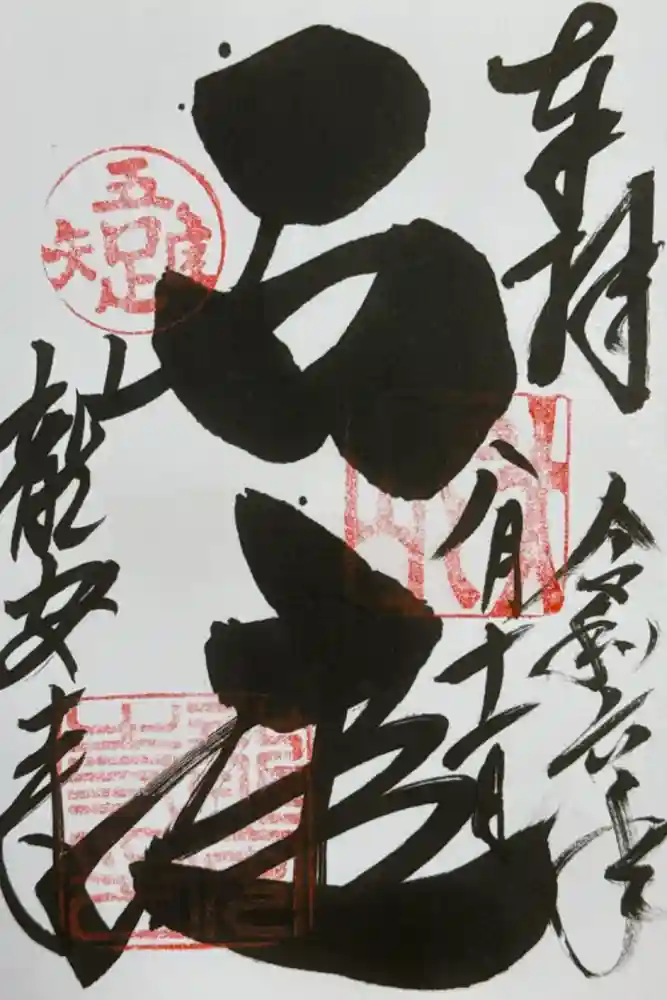 奉拝
令和六年
八月十一日
石庭
龍安寺
吾唯足知